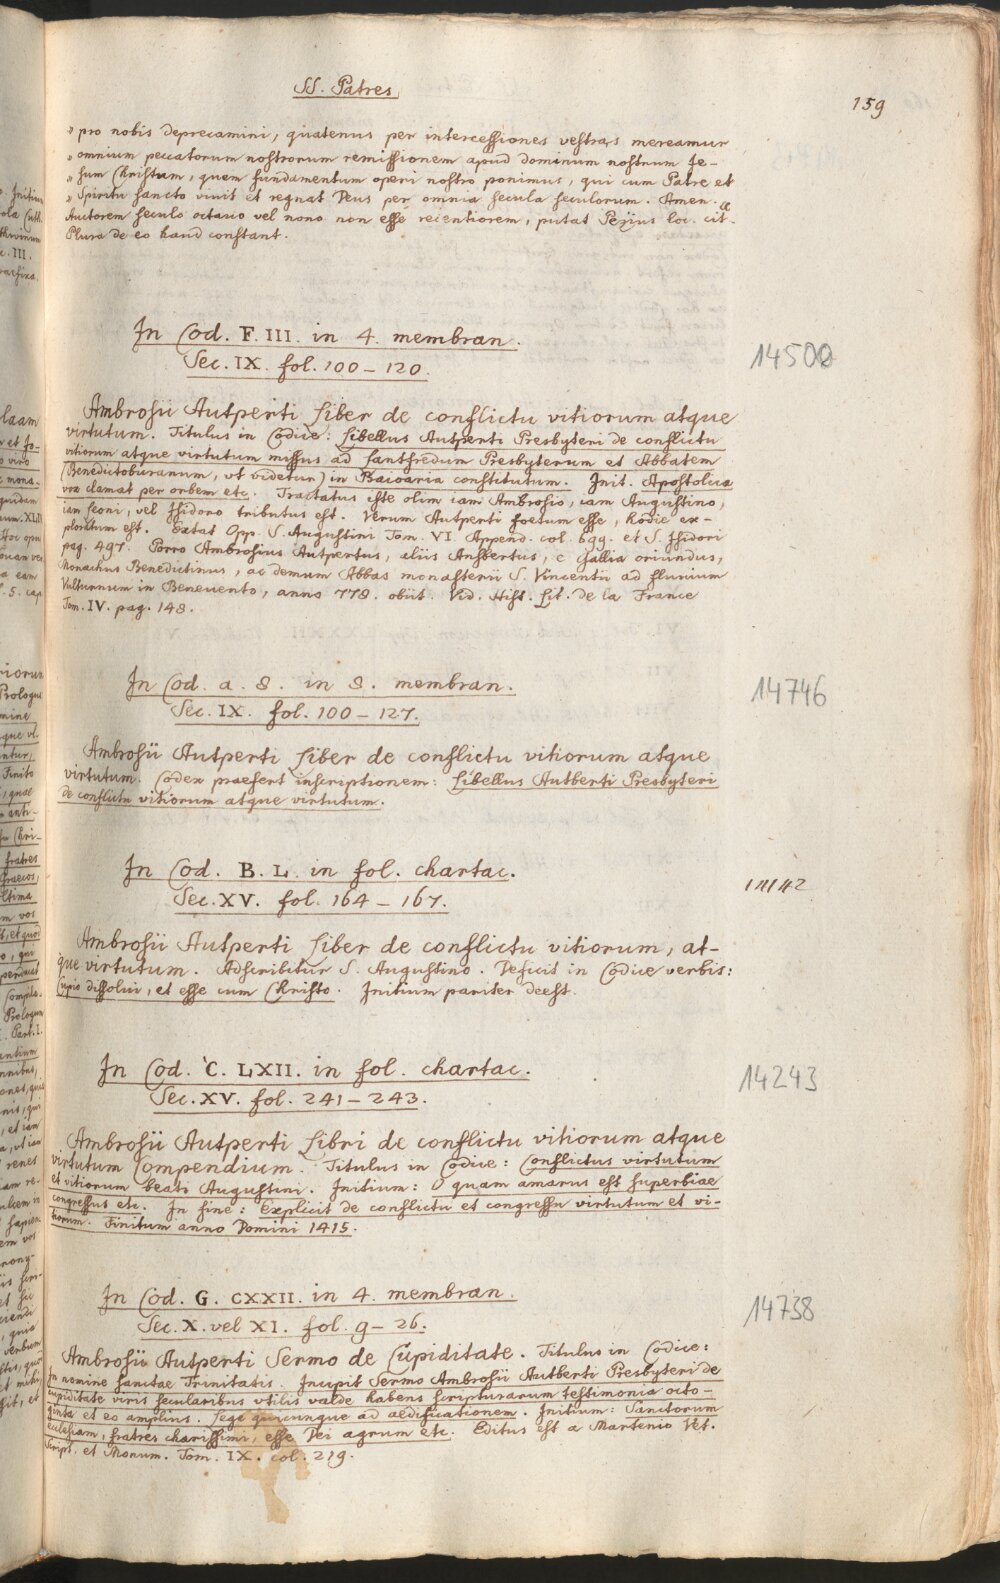 SS. Patres
159
" pro nobis deprecamini, quatenus per intercessiones vestras mereamur
" omnium peccatorum nostrorum remissionem apud dominum nostrum Je-
" sum Christum, quem fundamentum operi nostro ponimus, qui cum Patre et
" Spiritu sancto vivit et regnat Deus per omnia secula seculorum. Amen. "
Auctorem seculo octauo vel nono non esse recentiorem, putat Pezius loc. cit.
Plura de eo haud constant.
In Cod. F. III. in 4. membran.
14500
Sec. IX. fol. 100 – 120.
Ambrosii Autperti Liber de conflictu vitiorum atque
virtutum. Titulus in Codice: Libellus Autperti Presbyteri de conflictu
vitiorum atque virtutum missus ad Lantfredum Presbyterum et Abbatem
(Benedictoburanum, vt videtur) in Baioaria constitutum. Init. Apostolica
vox clamat per orbem etc. Tractatus iste olim iam Ambrosio, iam Augustino,
iam Leoni, vel Isidoro tributus est. Verum Autperti foetum esse, hodie ex-
ploratum est. Extat Opp. S. Augustini Tom. VI. Append. col. 699. et S. Isidori
pag. 497. Porro Ambrosius Autpertus, aliis Ansbertus, e Gallia oriundus,
Monachus Benedictinus, ac demum Abbas monasterii S. Vincentii ad flurium
Vulturnum in Beneuento, anno 778. obiit. Vid. Hist. Lit. de la France
Tom. IV. pag. 148.
In Cod. a. 8. in 8. membran.
14746
Sec. IX. fol. 100 – 127.
Ambrosii Autperti Liber de conflictu vitiorum atque
virtutum. Codex praefert inscriptionem: Libellus Autberti Presbyteri
de conflictu vitiorum atque virtutum.
In Cod. B. L. in fol. chartac.
14142
Sec. XV. fol. 164 – 167.
Ambrosii Autperti Liber de conflictu vitiorum, at-
que virtutum. Adscribitur S. Augustino. Deficit in Codice verbis:
Cupio dissolui, et esse cum Christo. Initium pariter deest.
In Cod. C. LXII. in fol. chartac.
14243
Sec. XV. fol. 241 – 243.
Ambrosii Autperti Libri de conflictu vitiorum atque
virtutum Compendium. Titulus in Codice: Conflictus virtutum
et vitiorum beati Augustini. Initium: O quam amarus est superbiae
congressus etc. In fine: Explicit de conflictu et congressu virtutum et vi-
tiorum. Finitum anno Domini 1415.
In Cod. G. CXXII. in 4. membran.
14738
Sec. X. vel XI. fol. 9 – 26.
Ambrosii Autperti Sermo de Cupiditate. Titulus in Codice:
In nomine sanctae Trinitatis. Incipit Sermo Ambrosii Autberti Presbyteri de
cupiditate viris secularibus vtilis valde habens scripturarum testimonia octo-
ginta et eo amplius. Lege quicunque ad aedificationem. Initium: Sanctorum
ecclesiam, fratres charissimi, esse Dei agrum etc. Editus est a Martenio Vet.
Script. et Monum. Tom. IX. col. 219.